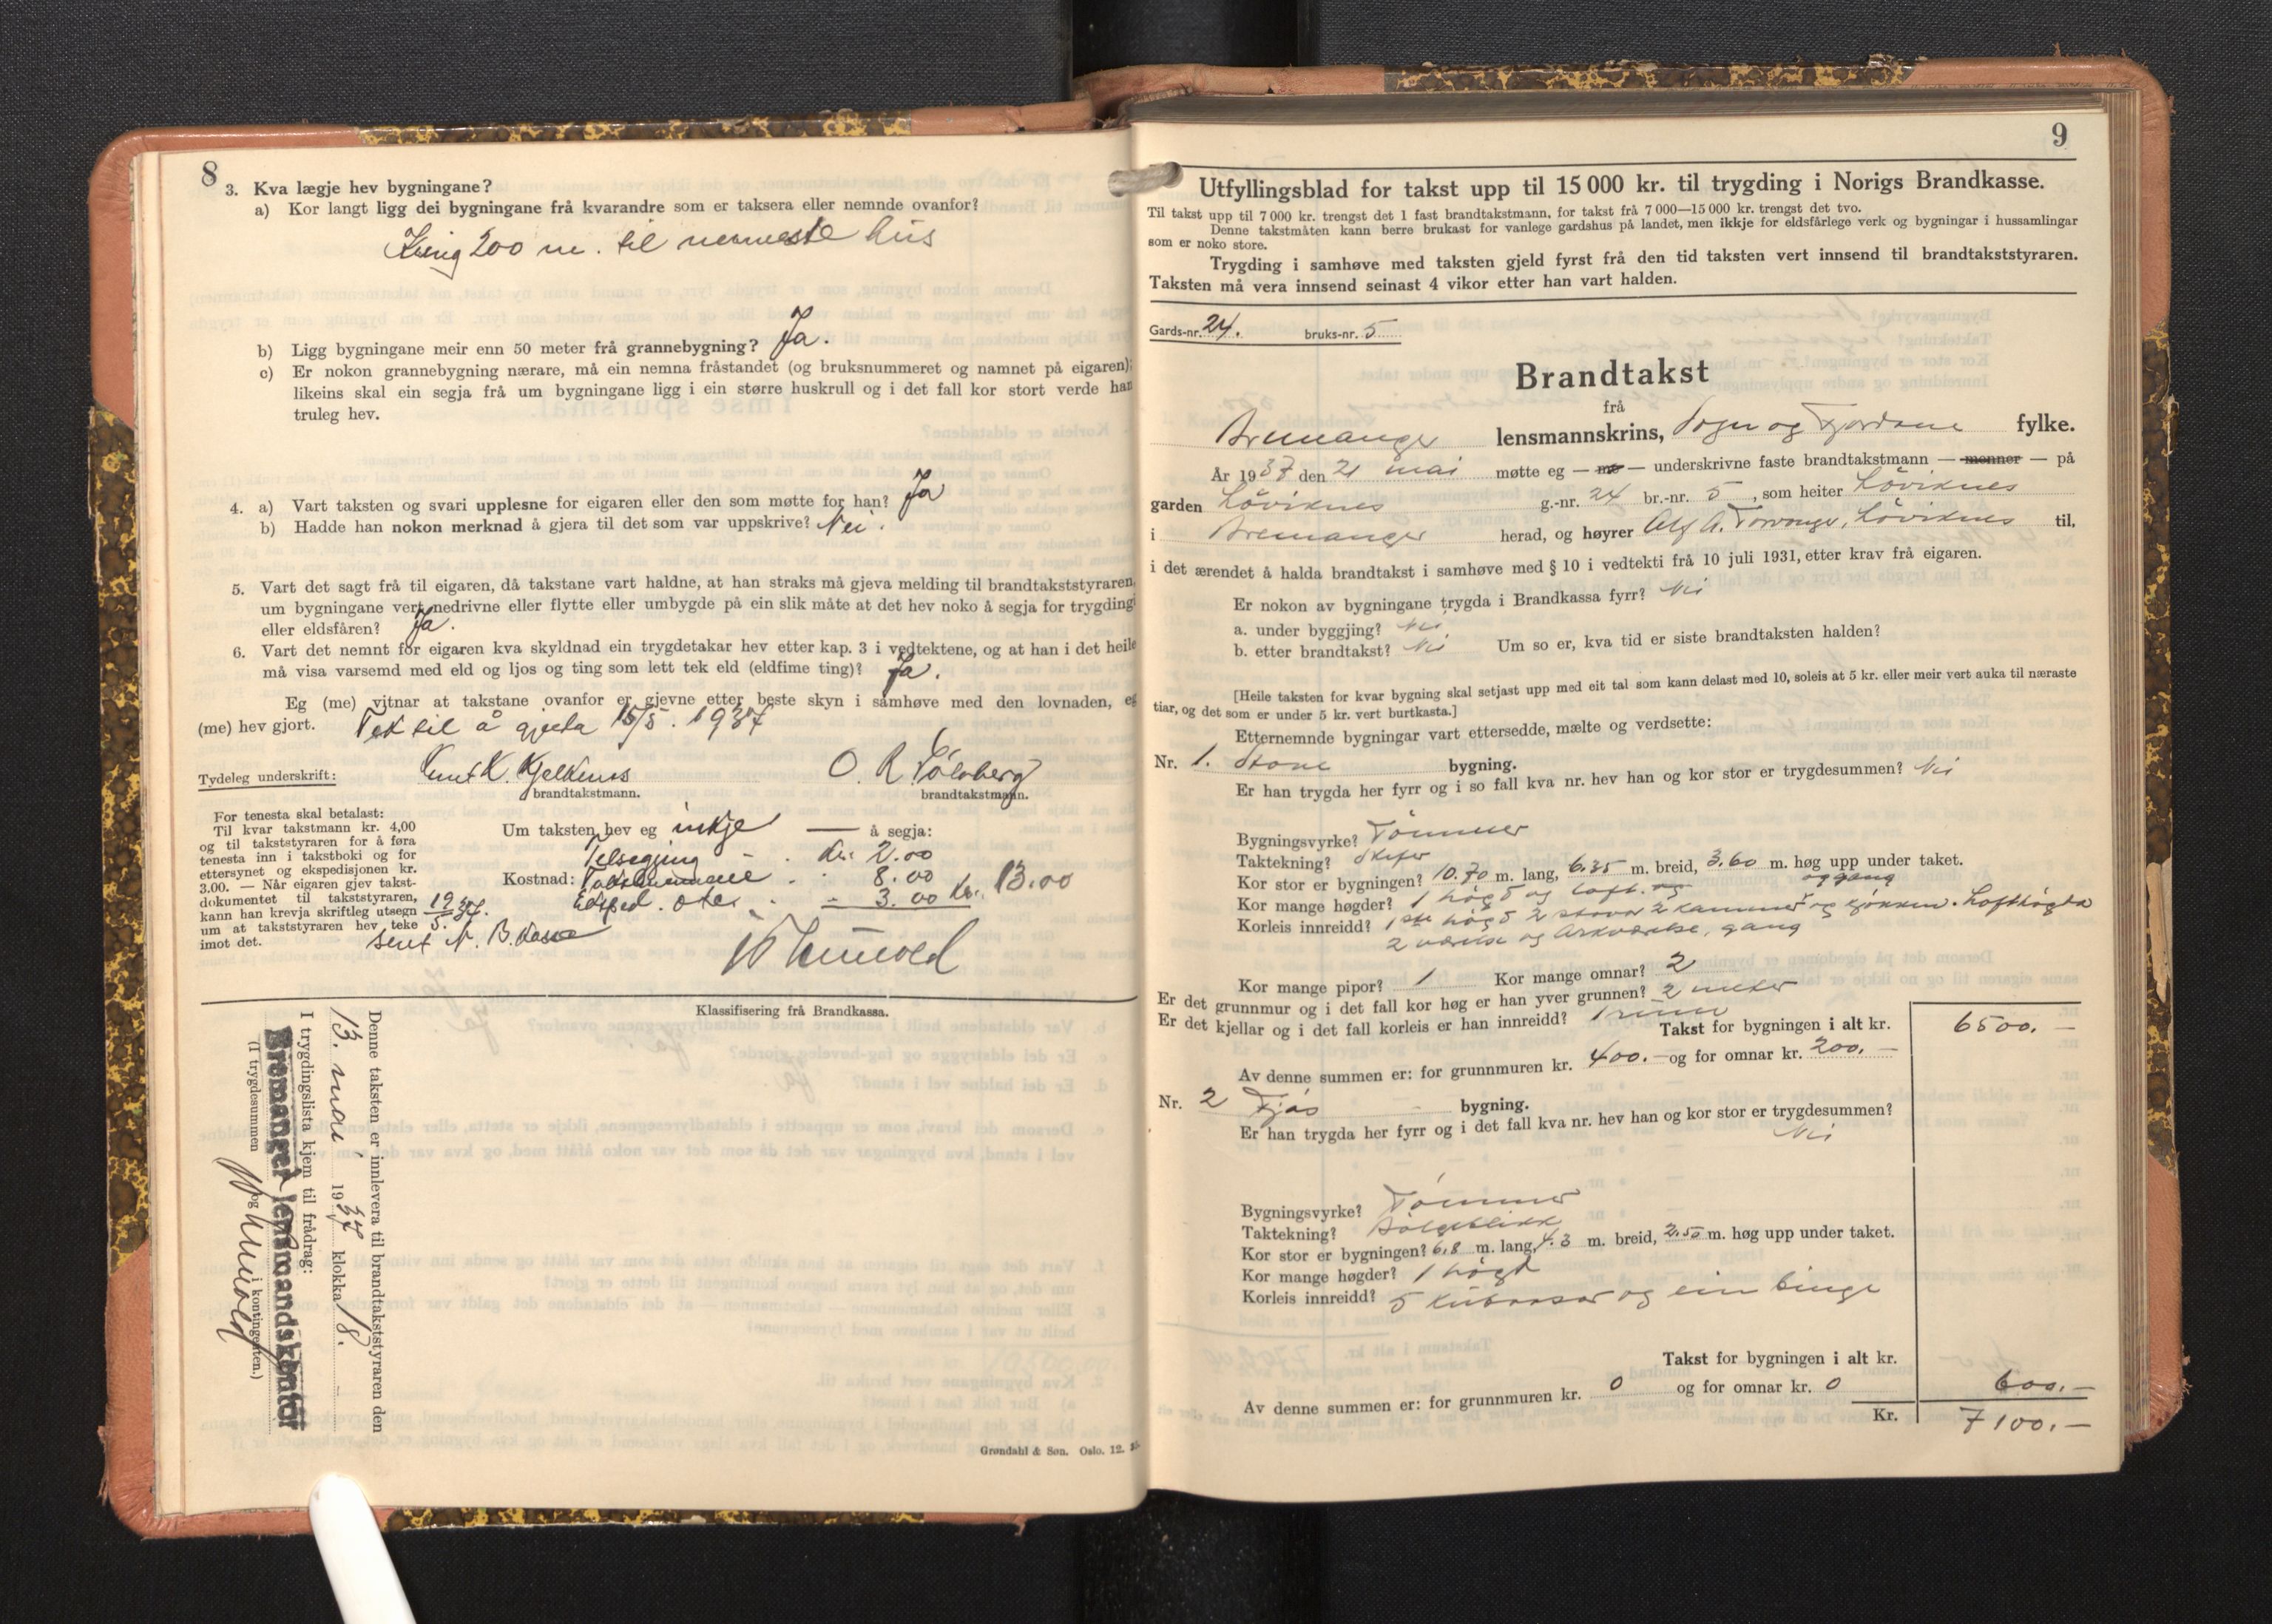 8
3. Kva lægje hev bygningane?
a) Kor langt ligg dei bygningane frå kvarandre som er taksera eller nemnde ovanfor?
200 m. til nærmeste hus
b) Ligg bygningane meir enn 50 meter frå grannebygning? Ja.
c) Er nokon grannebygning nærare, må ein nemna fråstandet (og bruksnummeret og namnet på eigaren);
likeins skal ein segja frå um bygningane ligg i ein større huskrull og i det fall kor stort verde han
truleg hev.
4. a) Vart taksten og svari upplesne for eigaren eller den som møtte for han? Ja
b) Hadde han nokon merknad å gjera til det som var uppskrive? Nei.
5. Vart det sagt frå til eigaren, då takstane vart haldne, at han straks må gjeva melding til brandtakststyraren,
um bygningane vert nedrivne eller flytte eller umbygde på ein slik måte at det hev noko å segja for trygdingi
eller eldsfåren? Ja.
6. Vart det nemnt for eigaren kva skyldnad ein trygdetakar hev etter kap. 3 i vedtektene, og at han i det heile
må visa varsemd med eld og ljos og ting som lett tek eld (eldfime ting)? Ja.
Eg (me) vitnar at takstane ovanfor er gjevne etter beste skyn i samhøve med den lovnaden, eg
(me) hev gjort. 15/5. 1937
Tydeleg underskrift: O. R.
brandtakstmann. brandtakstmann.
For tenesta skal betalast:
Til kvar takstmann kr. 4,00
og til takststyraren for å føra
tenesta inn i takstboki og for
ettersynet og ekspedisjonen kr.
3.00. — Når eigaren gjev takst-
dokumentet til takststyraren,
kann han krevja skriftleg utsegn
um at takststyraren hev teke
imot det.
Um taksten hev eg inkje — å segja:
Tilsegjing - . kr. 2.00
Kostnad: Takstmennene . . 8.00
Eksped. - 3.00 Kr. 13.00
19/5. 37.
sent N. B. kasse
Klassifisering frå Brandkassa.
Denne taksten er innlevera til brandtakststyraren den
13. mai, 1937 klokka 18.
I trygdingslista kjem til frådrag:
Bremanger lensmandskontor
(I trygdesummen og i kontingenten.)
Grøndahl & Søn. Oslo. 12.
9
Utfyllingsblad for takst upp til 15 000 kr. til trygding i Norigs Brandkasse.
Til takst upp til 7 000 kr. trengst det 1 fast brandtakstmann, for takst frå 7 000—15 000 kr. trengst det tvo.
Denne takstmåten kann berre brukast for vanlege gardshus på landet, men ikkje for eldsfårlege verk og bygningar i hussamlingar
som er noko store.
Trygding i samhøve med taksten gjeld fyrst frå den tid taksten vert innsend til brandtakststyraren.
Taksten må vera innsend seinast 4 vikor etter han vart halden.
Gards-nr. 24. bruks-nr. 5
Brandtakst
frå
Bremanger lensmannskrins, Sogn og Fjordane fylke.
År 1937 den 21 mai møtte eg — me — underskrivne faste brandtakstmann — menner — på
garden Løviknes g.-nr. 24 br.-nr. 5, som heiter Løviknes
i Bremanger herad, og høyrer A. Løviknes til,
i det ærendet å halda brandtakst i samhøve med § 10 i vedtekti frå 10 juli 1931, etter krav frå eigaren.
Er nokon av bygningane trygda i Brandkassa fyrr? Nei
a. under byggjing? Nei
b. etter brandtakst? Nei Um so er, kva tid er siste brandtaksten halden?
[Heile taksten for kvar bygning skal setjast upp med eit tal som kann delast med 10, soleis at 5 kr. eller meir vert auka til næraste
tiar, og det som er under 5 kr. vert burtkasta.]
Etternemnde bygningar vart ettersedde, mælte og verdsette:
Nr. 1. Stove bygning.
Er han trygda her fyrr og i so fall kva nr. hev han og kor stor er trygdesummen? Nei
Bygningsvyrke? Tømmer
Taktekning? Skifer
Kor stor er bygningen? 10.70 m. lang, 6.35 m. breid, 3.60 m. høg upp under taket.
Kor mange høgder? 1 høgd og loft.
Korleis innreidd? 1ste høgd 2 stover 2 kammer og gang og kjøkken. Lofthøgda
2 værelse og Arkværelse, gang
Kor mange pipor? 1 Kor mange omnar? 2
Er det grunnmur og i det fall kor høg er han yver grunnen? 2 meter
Er det kjellar og i det fall korleis er han innreidd? 1 rum
Takst for bygningen i alt kr. 6500.—
Av denne summen er: for grunnmuren kr. 400.— og for omnar kr. 200.—
Nr. 2 Fjøs bygning.
Er han trygda her fyrr og i det fall kva nr. hev han og kor stor er trygdesummen?
Nei
Bygningsvyrke? Tømmer
Taktekning? Bølgeblikk
Kor stor er bygningen? 6.8 m. lang, 4.3 m. breid, 2.50 m. høg upp under taket.
Kor mange høgder? 1 høgd
Korleis innreidd? 5 kubaaser og ein binge
Takst for bygningen i alt kr.
Av denne summen er: for grunnmuren kr. 0 og for omnar kr. 0 600.—
Kr. 7100.—